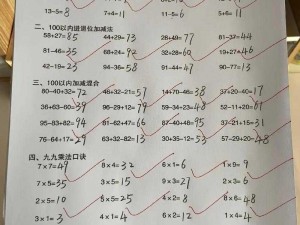 13-5=8 7+4=11 11-5=6 5+6=11
二、100以内进退位加减法
58+27=85 44+29=73 49+28=77 81-37=44
81-46=35 68+24=92 32+28=60 19+27=46
42-19=23 94-36=58 91-47=44 90-77=13
三、100以内加减混合
80-40+32=72 48+32-21=57 14+70-46=38 37+20-40=17
36+63-60=39 96-79+12=29 59-34+23=48 52-11+20=61
95-83+82=94 81-62+47=66 87-40+48=95 83-52=31
76-64+17=29 63+32-82=13 30+35-12=53 57-29+20=48
四、九九乘法口诀
7×7=49 8×4=32 6×1=6 1×9=9
7×5=35 3×5=15 9×3=27 2×3=6
2×5=10 5×5=25 2×4=8 8×6=48
3×1=3 4×1=4 6×2=12 1×4=4